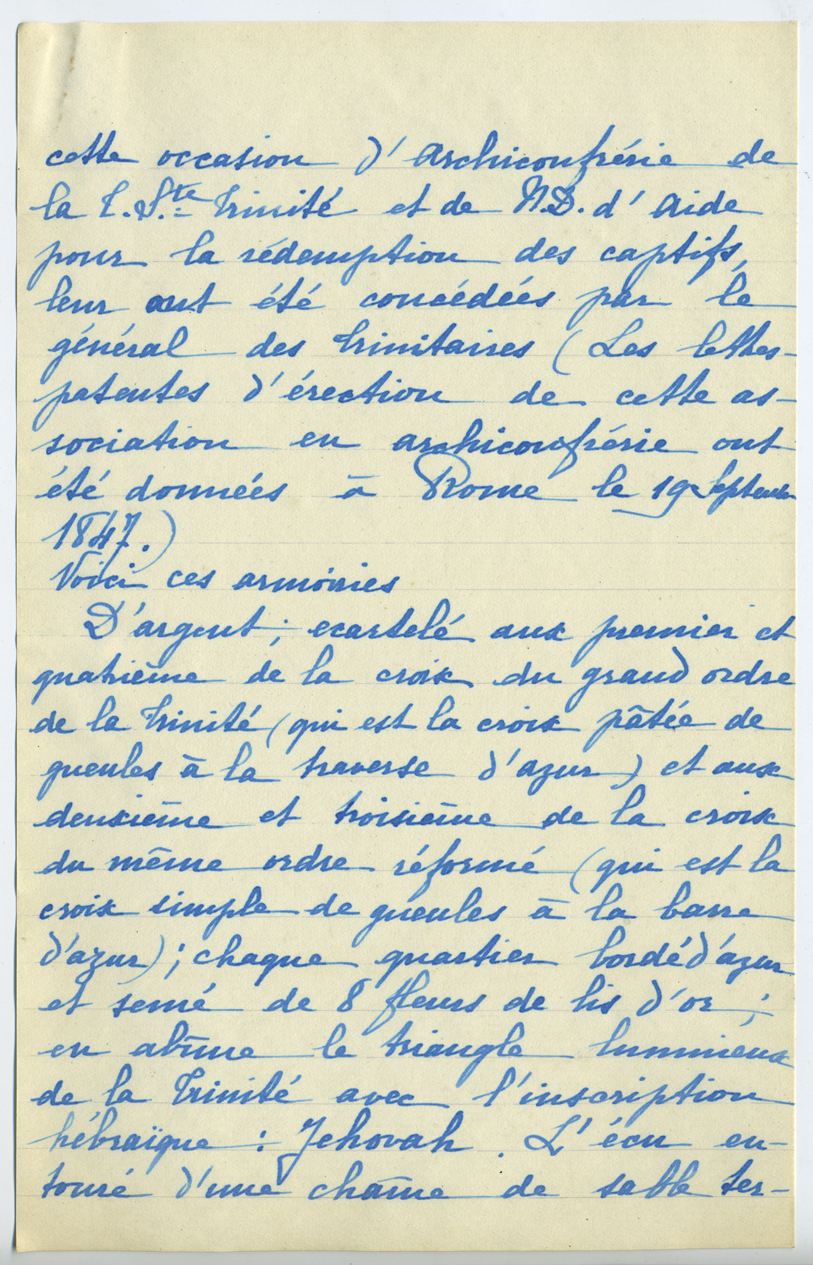 cette occasion d'Archiconfrérie de
la T. S.te Trinité et de N.D. d'Aide
pour la rédemption des captifs,
leur ont été concédées par le
général des Trinitaires (Les lettres-
patentes d'érection de cette as-
sociation en archiconfrérie ont
été données à Rome le 19 Septembre
1847.)
Voici ces armoiries
D'argent; ecartelé aux premier et
quatrième de la croix du grand ordre
de la Trinité (qui est la croix pâtée de
gueules à la traverse d'azur) et aux
deuxième et troisième de la croix
du même ordre réformé (qui est la
croix simple de gueules à la barre
d'azur); chaque quartier bordé d'azur
et semé de 8 fleurs de lis d'or;
en abîme le triangle lumineux
de la Trinité avec l'inscription
hébraïque : Jehovah. L'écu en-
touré d'une chaîne de sable ter-